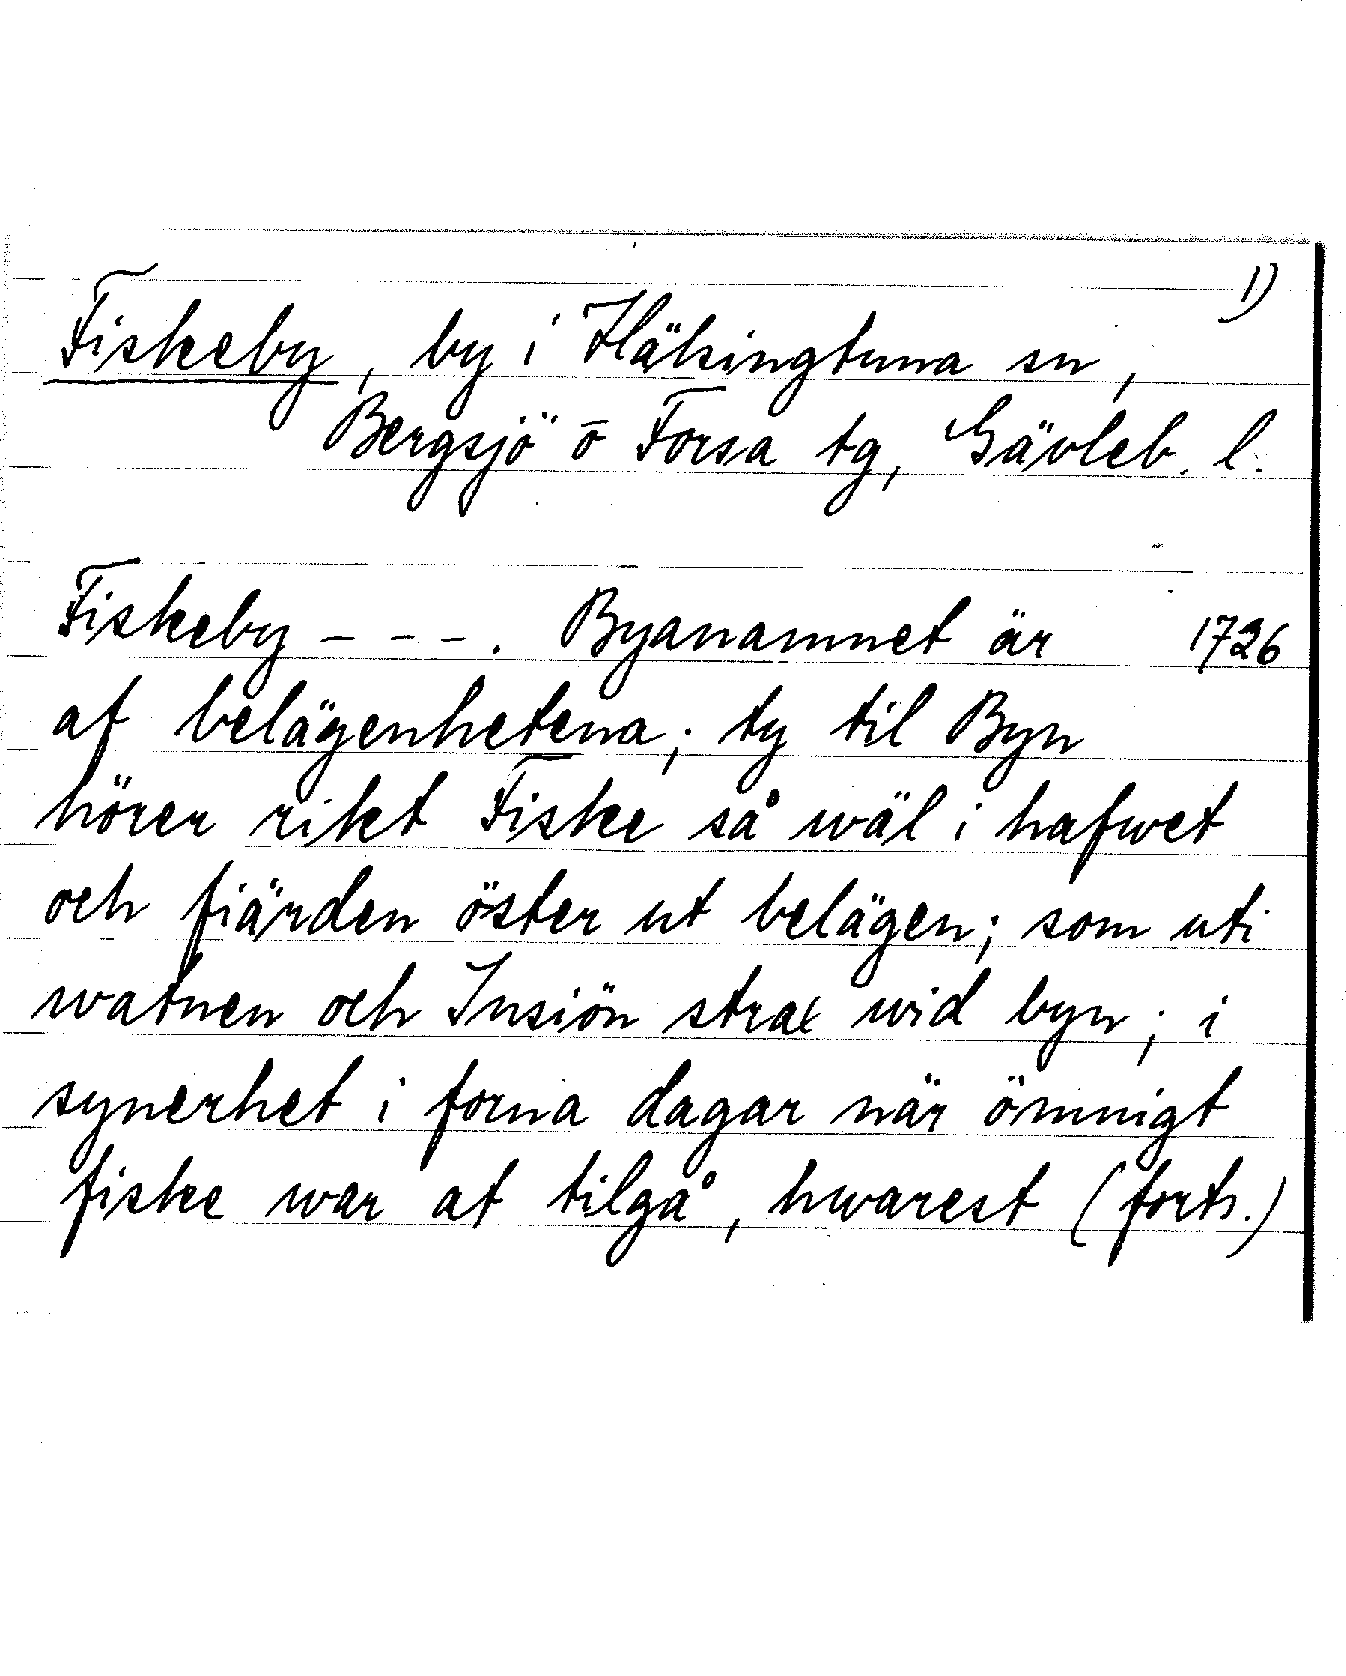 1)
Fiskeby, by i Hälsingtuna sn,
Bergsjö o Forsa tg, Gävleb. l.
Fiskeby - - -. Byanamnet är 1726
af belägenhetena; ty til Byn
hörer rikt Fiske så wäl i hafwet
och fiärden öster ut belägen; som uti
watnen och Insiön strax wid byn; i
synerhet i forna dagar när ömnigt
fiske war at tilgå, hwarest (forts.)